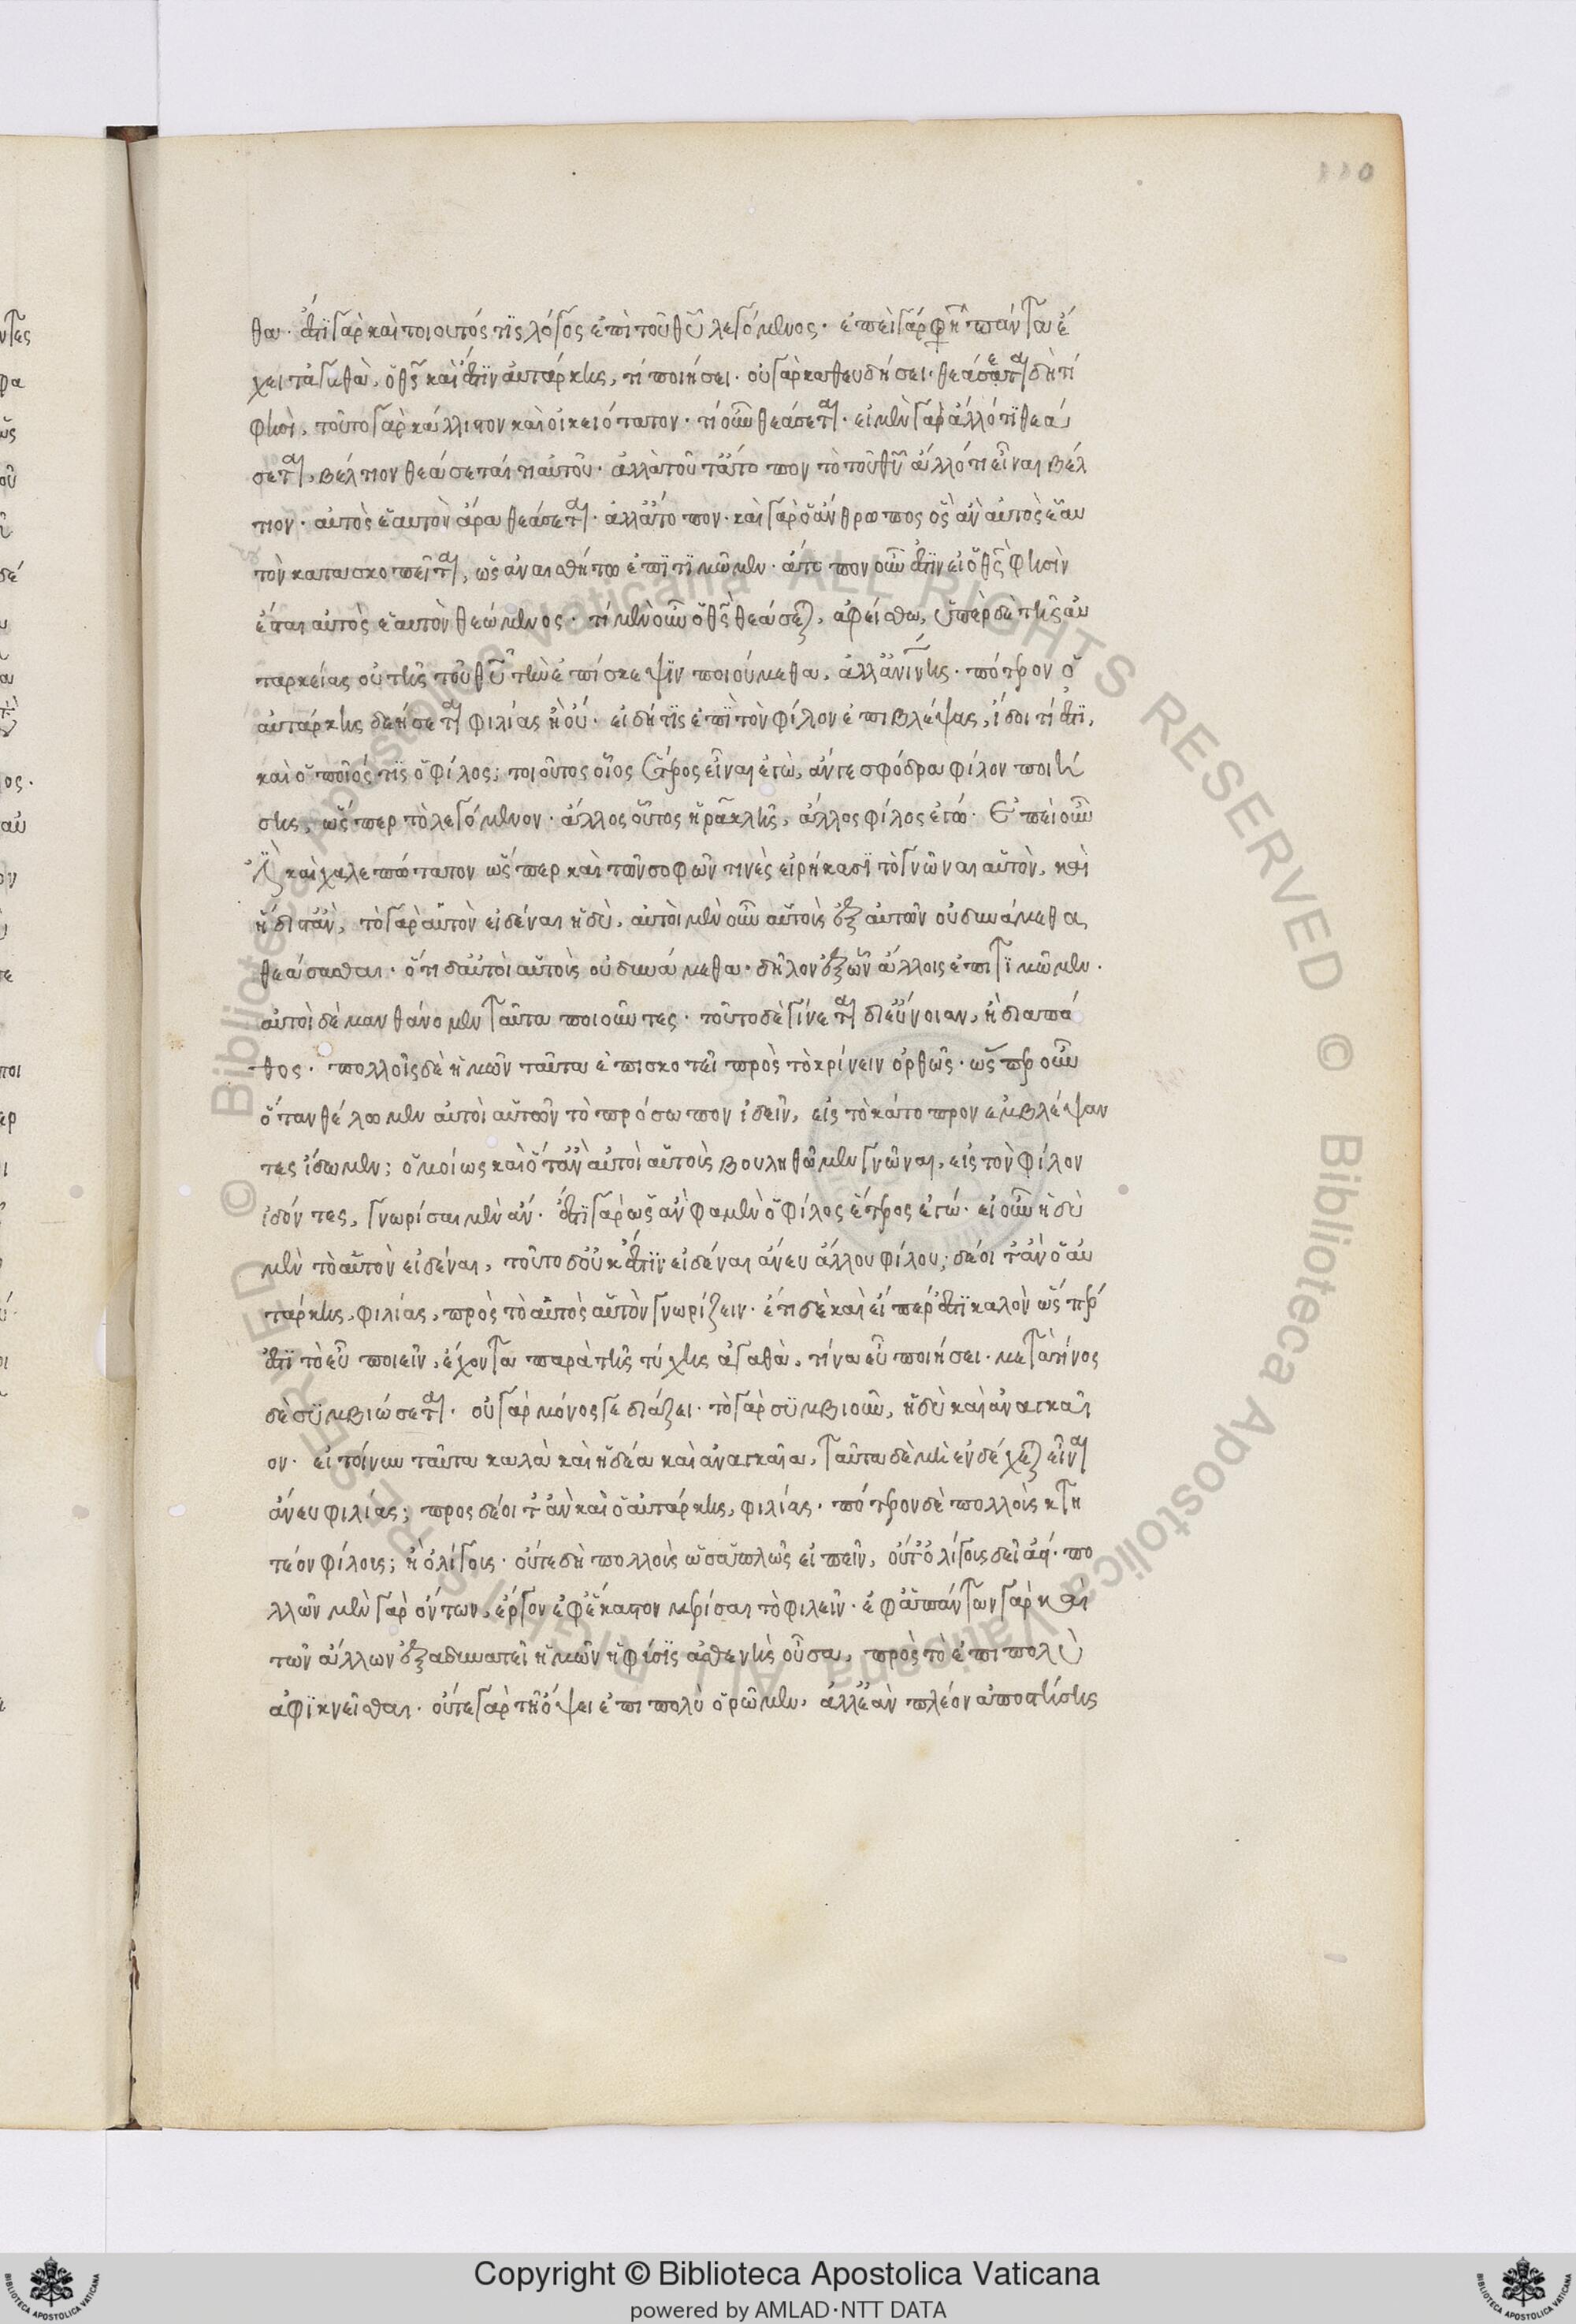 110
θα· ἔστι γὰρ καὶ τοιοῦτός τις λόγος ἐπὶ τοῦ θεοῦ λεγόμενος· ἐπεὶ γάρ φησι πάντα ἔ
χει τἀγαθὰ, ὁ θεὸς καὶ ἔστιν αὐτάρκης, τί ποιήσει· οὐ γὰρ καθευδήσει· θεάσεται δή τι
φησὶ, τοῦτο γὰρ κάλλιστον καὶ οἰκειότατον· τί οὖν θεάσεται· εἰ μὲν γὰρ ἄλλό τι θεά
σεται, βέλτιον θεάσεταί τι αὐτοῦ· ἀλλὰ τοῦτ' ἄτοπον τὸ τοῦ θεοῦ ἄλλό τι εἶναι βέλ
τιον· αὐτὸς ἑαυτὸν ἄρα θεάσεται· ἀλλ' ἄτοπον· καὶ γὰρ ὁ ἄνθρωπος ὃς ἂν αὐτὸς ἑαυ
τὸν κατασκοπεῖται, ὡς ἀναισθήτῳ ἐπιτιμῶμεν· ἄτοπον οὖν ἔστιν εἰ ὁ θεὸς φησὶν
ἔσται αὐτὸς ἑαυτὸν θεώμενος· τί μὲν οὖν ὁ θεὸς θεάσεται, ἀφείσθω, ὑπὲρ δὲ τῆς αὐ
ταρκείας οὐ τῆς τοῦ θεοῦ τὴν ἐπίσκεψιν ποιούμεθα, ἀλλ' ἀνθρωπίνης· πότερον ὁ
αὐτάρκης δεήσεται φιλίας ἢ οὔ· εἰ δή τις ἐπὶ τὸν φίλον ἐπιβλέψας, ἴδοι τί ἐστι,
καὶ ὁποῖός τις ὁ φίλος; τοιοῦτος οἷος ἕτερος εἶναι ἐγὼ, ἄν γε σφόδρα φίλον ποιή
σῃς, ὥσπερ τὸ λεγόμενον· ἄλλος οὗτος ἡρακλῆς, ἄλλος φίλος ἐγώ· Ἐπεὶ οὖν
ἐστὶ καὶ χαλεπώτατον ὥσπερ καὶ τῶν σοφῶν τινὲς εἰρήκασι τὸ γνῶναι αὑτὸν, καὶ
ἥδιστον, τὸ γὰρ αὑτὸν εἰδέναι ἡδὺ, αὐτοὶ μὲν οὖν αὑτοὺς ἐξ αὑτῶν οὐ δυνάμεθα
θεάσασθαι· ὅτι δ' αὐτοὶ αὑτοὺς οὐ δυνάμεθα· δῆλον ἐξ ὧν ἄλλοις ἐπιτιμῶμεν·
αὐτοὶ δὲ λανθάνομεν ταῦτα ποιοῦντες· τοῦτο δὲ γίνεται δι' εὔνοιαν, ἢ διὰ πά
θος· πολλοῖς δὲ ἡμῶν ταῦτα ἐπισκοτεῖ πρὸς τὸ κρίνειν ὀρθῶς· ὥσπερ οὖν
ὅταν θέλωμεν αὐτοὶ αὑτῶν τὸ πρόσωπον ἰδεῖν, εἰς τὸ κάτοπτρον ἐμβλέψαν
τες ἴδωμεν; ὁμοίως καὶ ὅταν αὐτοὶ αὑτοὺς βουληθῶμεν γνῶναι, εἰς τὸν φίλον
ἰδόντες, γνωρίσαιμεν ἄν· ἔστι γὰρ ὡς ἂν φαμὲν ὁ φίλος ἕτερος ἐγώ· εἰ οὖν ἡδὺ
μὲν τὸ αὑτὸν εἰδέναι, τοῦτο δ' οὐκ ἔστιν εἰδέναι ἄνευ ἄλλου φίλου; δέοι τ' ἂν ὁ αὐ
τάρκης, φιλίας, πρὸς τὸ αὐτὸς αὑτὸν γνωρίζειν· ἔτι δὲ καὶ εἴπερ ἐστὶ καλὸν ὥσπερ
ἐστὶ τὸ εὖ ποιεῖν, ἔχοντα παρὰ τῆς τύχης ἀγαθὰ, τίνα εὖ ποιήσει· μετὰ τίνος
δὲ συμβιώσεται· οὐ γὰρ μόνος γε διάξει· τὸ γὰρ συμβιοῦν, ἡδὺ καὶ ἀναγκαῖ
ον· εἰ τοίνυν ταῦτα καλὰ καὶ ἡδέα καὶ ἀναγκαῖα, ταῦτα δὲ μὴ ἐνδέχεται εἶναι
ἄνευ φιλίας; προσδέοιτ' ἂν καὶ ὁ αὐτάρκης, φιλίας· πότερον δὲ πολλοὺς κτη
τέον φίλους; ἢ ὀλίγους· οὔτε δὴ πολλοὺς ὡς ἁπλῶς εἰπεῖν, οὔτ' ὀλίγους δεῖ ἀεί· πο
λλῶν μὲν γὰρ ὄντων, ἔργον ἐφ' ἕκαστον μερίσαι τὸ φιλεῖν· ἐφ' ἁπάντων γὰρ καὶ
τῶν ἄλλων ἐξαδυνατεῖ ἡμῶν ἡ φύσις ἀσθενὴς οὖσα, πρὸς τὸ ἐπιπολὺ
ἀφικνεῖσθαι· οὔτε γὰρ τῇ ὄψει ἐπιπολὺ ὁρῶμεν, ἀλλ' ἐὰν πλέον ἀποστήσῃς
© Biblioteca Apostolica Vaticana ALL RIGHTS RESERVED
Copyright © Biblioteca Apostolica Vaticana
powered by AMLAD·NTT DATA